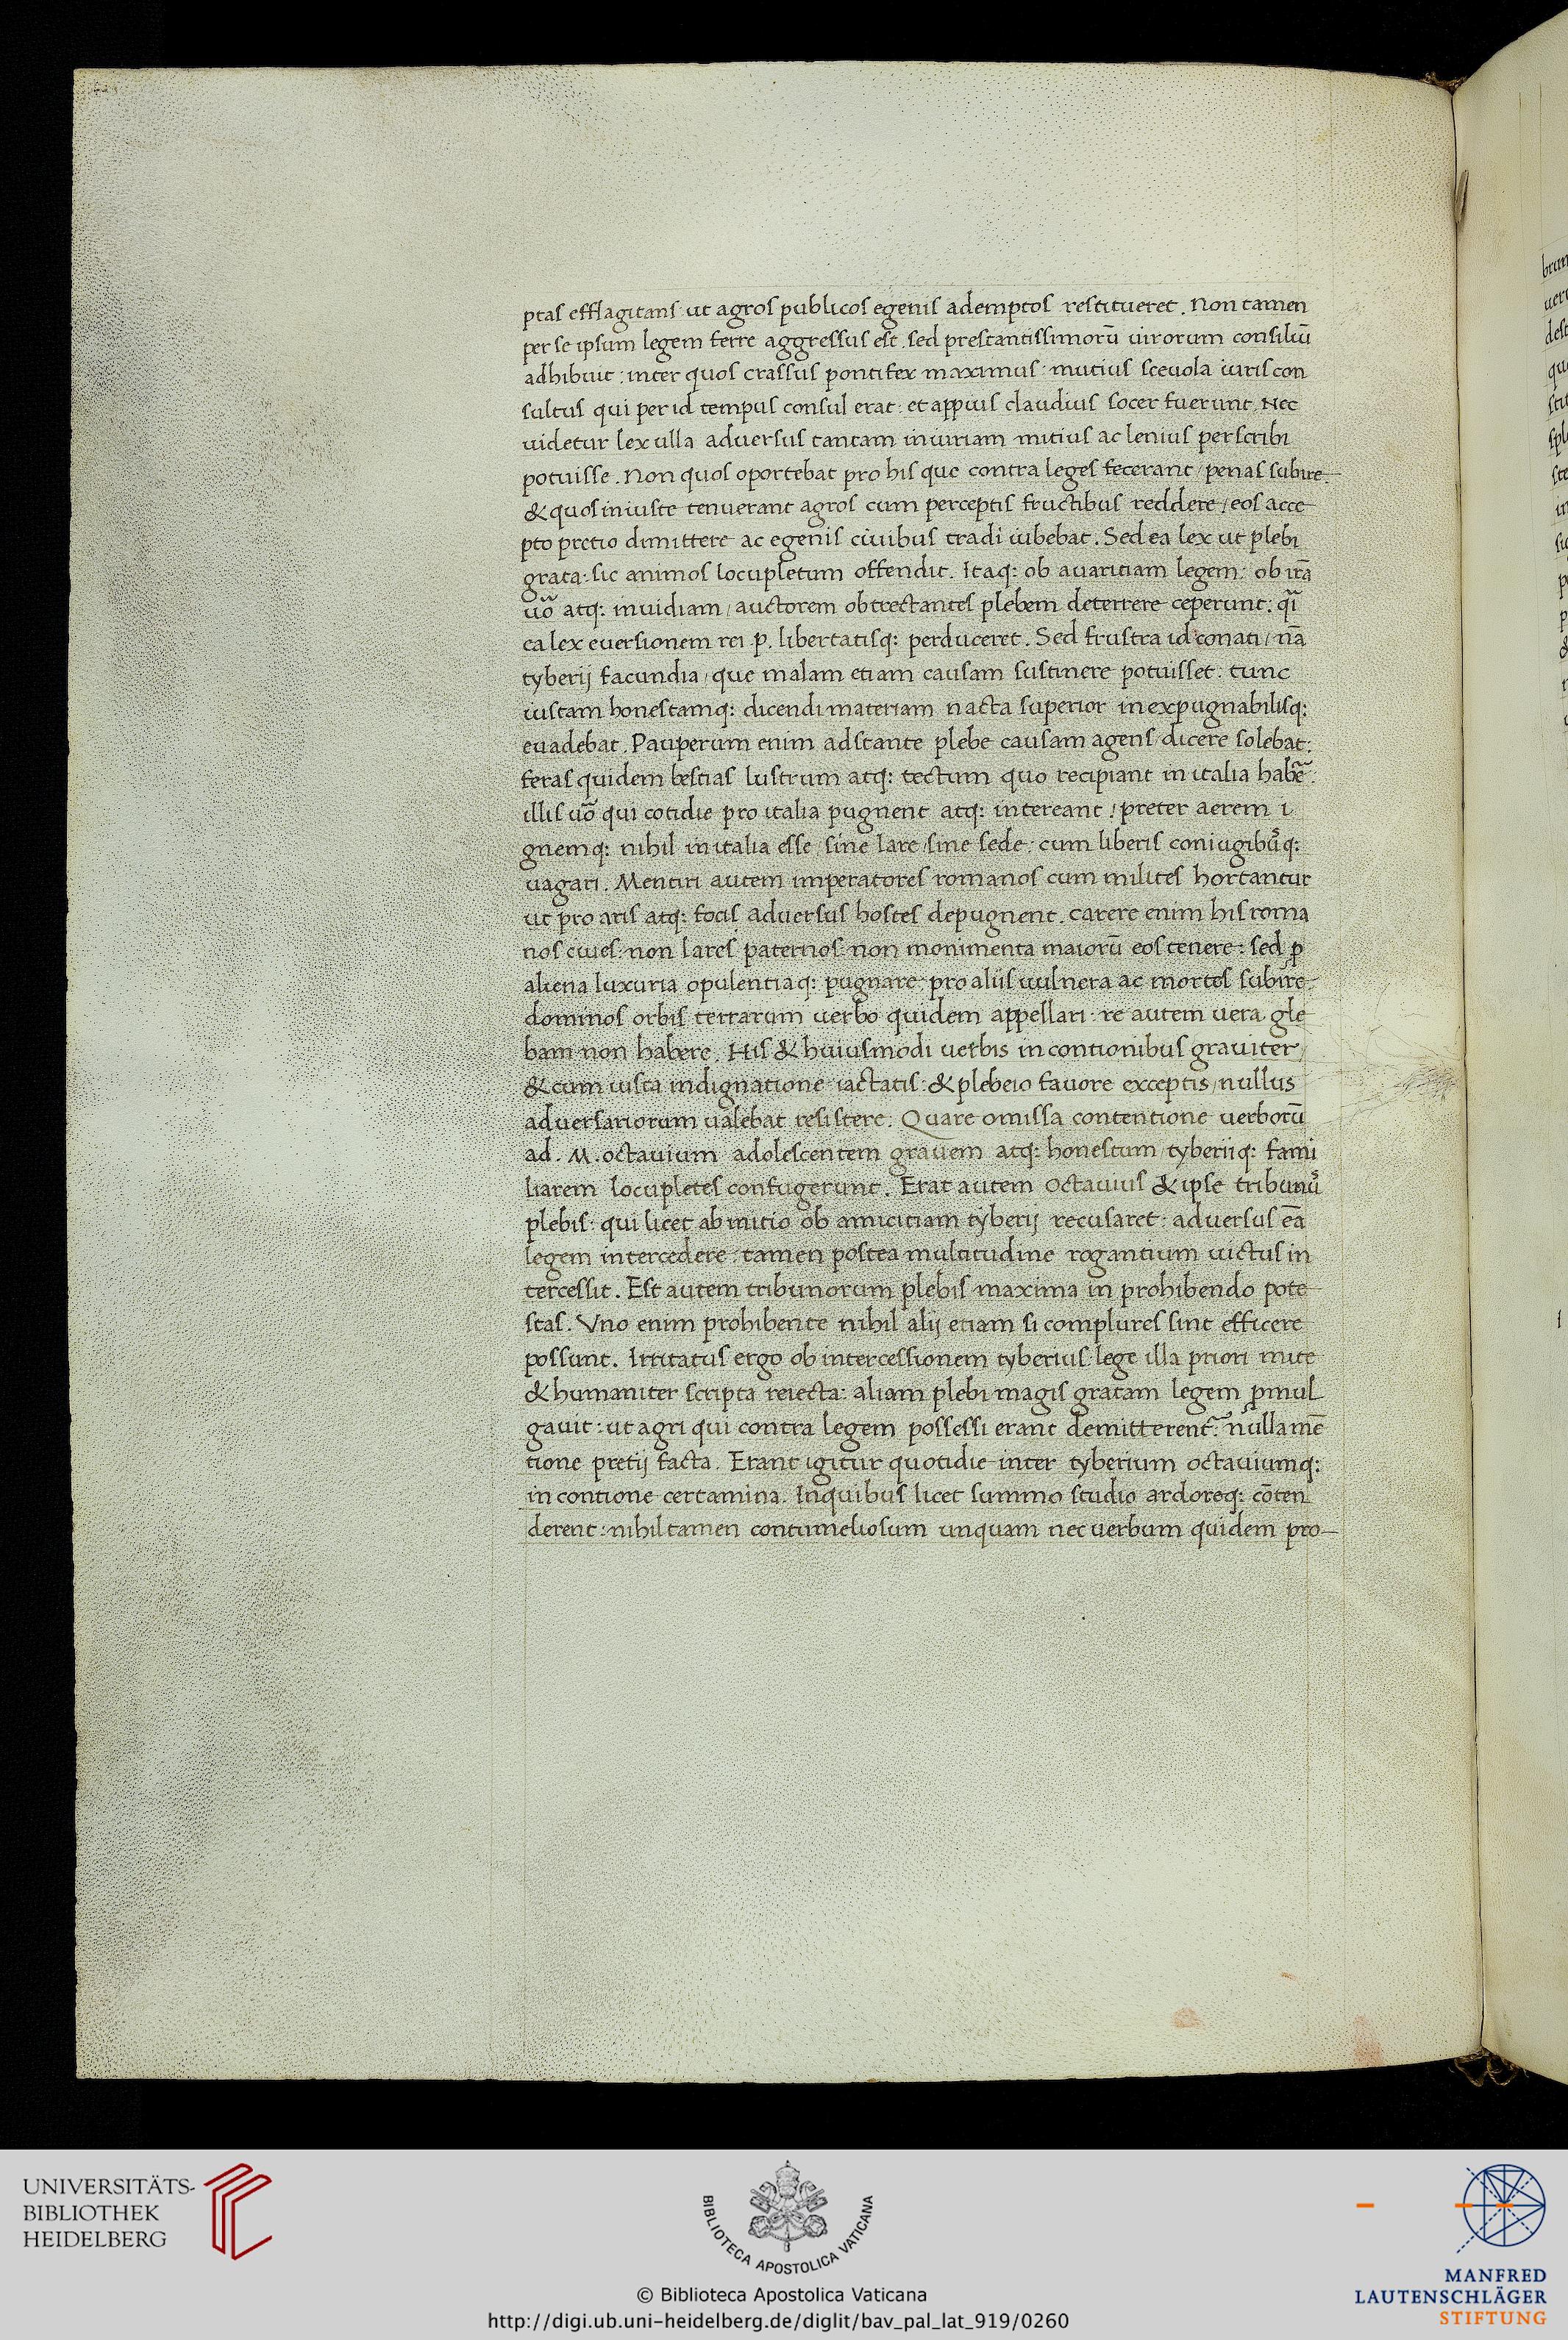 ptas efflagitans ut agros publicos egenis ademptos restitueret. Non tamen
per se ipsum legem ferre aggressus est. sed prestantissimorū uirorum consiliū
adhibuit: inter quos crassus pontifex maximus: mutius sceuola iuris con
sultus qui per id tempus consul erat: et appius claudius socer fuerunt. Nec
uidetur lex ulla aduersus tantam iniuriam mitius ac lenius perscribi
potuisse. Non quos oportebat pro his que contra leges fecerant / penas subire.
& quos iniuste tenuerant agros cum perceptis fructibus reddere / eos acce
pto pretio dimittere ac egenis ciuibus tradi iubebat. Sed ea lex ut plebi
grata: sic animos locupletum offendit. Itaq: ob auaritiam legem: ob irā
uō atq: inuidiam / auctorem obtrectantes plebem deterrere ceperunt: q̄i
ea lex euersionem rei .p. libertatisq: perduceret. Sed frustra id conati / nā
tyberij facundia / que malam etiam causam sustinere potuisset: tunc
iustam honestamq: dicendi materiam nacta superior inexpugnabilisq:
euadebat. Pauperum enim adstante plebe causam agens / dicere solebat:
feras quidem bestias lustrum atq: tectum quo recipiant in italia habē:
illis uō qui cotidie pro italia pugnent atq: intereant / preter aerem i
gnemq: nihil in italia esse / sine lare / sine sede: cum liberis coniugibusq:
uagari. Mentiri autem imperatores romanos cum milites hortantur
ut pro aris atq: focis aduersus hostes depugnent. carere enim his roma
nos ciues: non lares paternos: non monimenta maiorū eos tenere: sed p̄
aliena luxuria opulentiaq: pugnare: pro aliis uulnera ac mortes subire:
dominos orbis terrarum uerbo quidem appellari: re autem uera gle
bam non habere. His & huiusmodi uerbis in contionibus grauiter /
& cum iusta indignatione iactatis: & plebeio fauore exceptis / nullus
aduersariorum ualebat resistere. Quare omissa contentione uerborū
ad. M. octauium adolescentem grauem atq: honestum / tyberiiq: fami
liarem locupletes confugerunt. Erat autem octauius & ipse tribunus
plebis: qui licet ab initio ob amicitiam tyberij recusaret: aduersus eā
legem intercedere: tamen postea multitudine rogantium uictus in
tercessit. Est autem tribunorum plebis maxima in prohibendo pote
stas. Vno enim prohibente nihil alij etiam si complures sint efficere
possunt. Irritatus ergo ob intercessionem tyberius: lege illa priori mite
& humaniter scripta reiecta: aliam plebi magis gratam legem p̄mul
gauit: ut agri qui contra legem possessi erant demitterent̄: nulla mē
tione pretij facta. Erant igitur quotidie inter tyberium octauiumq:
in contione certamina. In quibus licet summo studio ardoreq: cōten
derent: nihil tamen contumeliosum unquam nec uerbum quidem pro-
UNIVERSITÄTS-
BIBLIOTHEK
HEIDELBERG
BIBLIOTECA APOSTOLICA VATICANA
© Biblioteca Apostolica Vaticana
http://digi.ub.uni-heidelberg.de/diglit/bav_pal_lat_919/0260
MANFRED
LAUTENSCHLÄGER
STIFTUNG